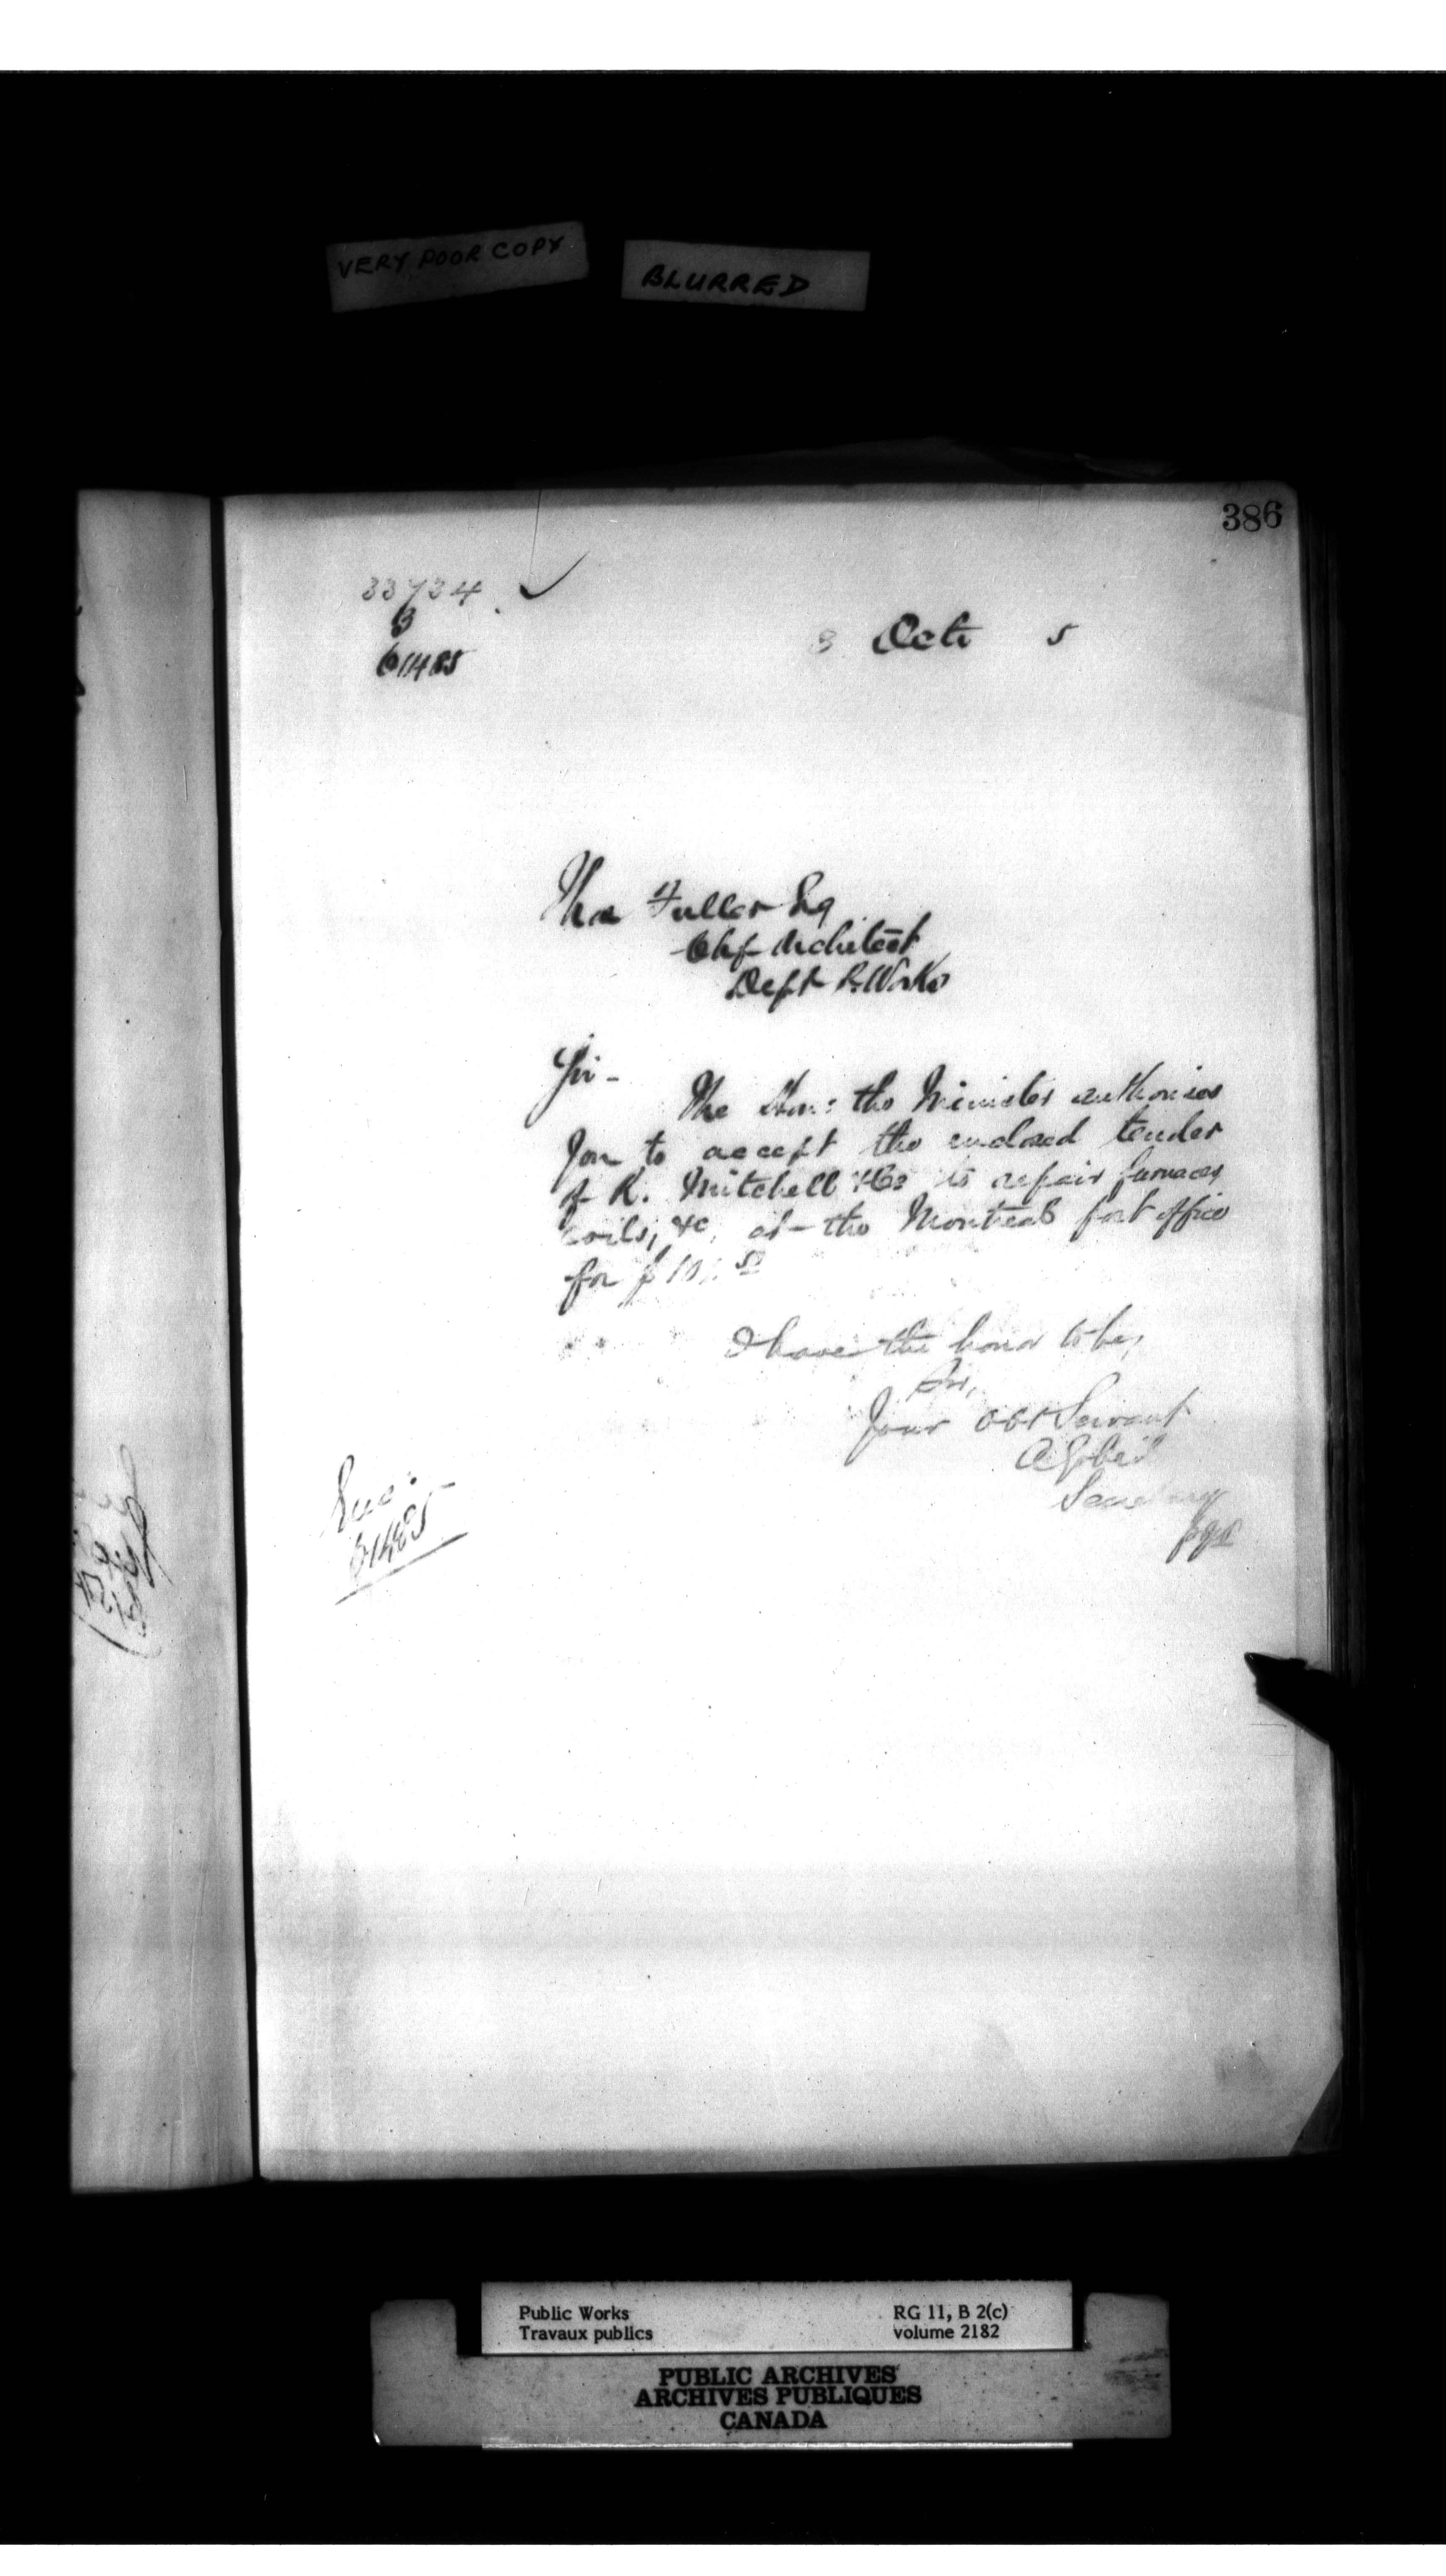 VERY POOR COPY
BLURRED
386
33734
B
61485
3 Octr 5
Thos Fuller Esq
Chf Architect
Dept P. Works
Sir -
The Hon: the Minister authorises
you to accept the enclosed tender
of R. Mitchell & Co to repair furnaces
coils, &c, at the Montreal post office
for $
I have the honor to be,
Sir,
Your obt Servant
A Gobeil
Secretary
Enc:
61485
Public Works
Travaux publics
RG 11, B 2(c)
volume 2182
PUBLIC ARCHIVES
ARCHIVES PUBLIQUES
CANADA